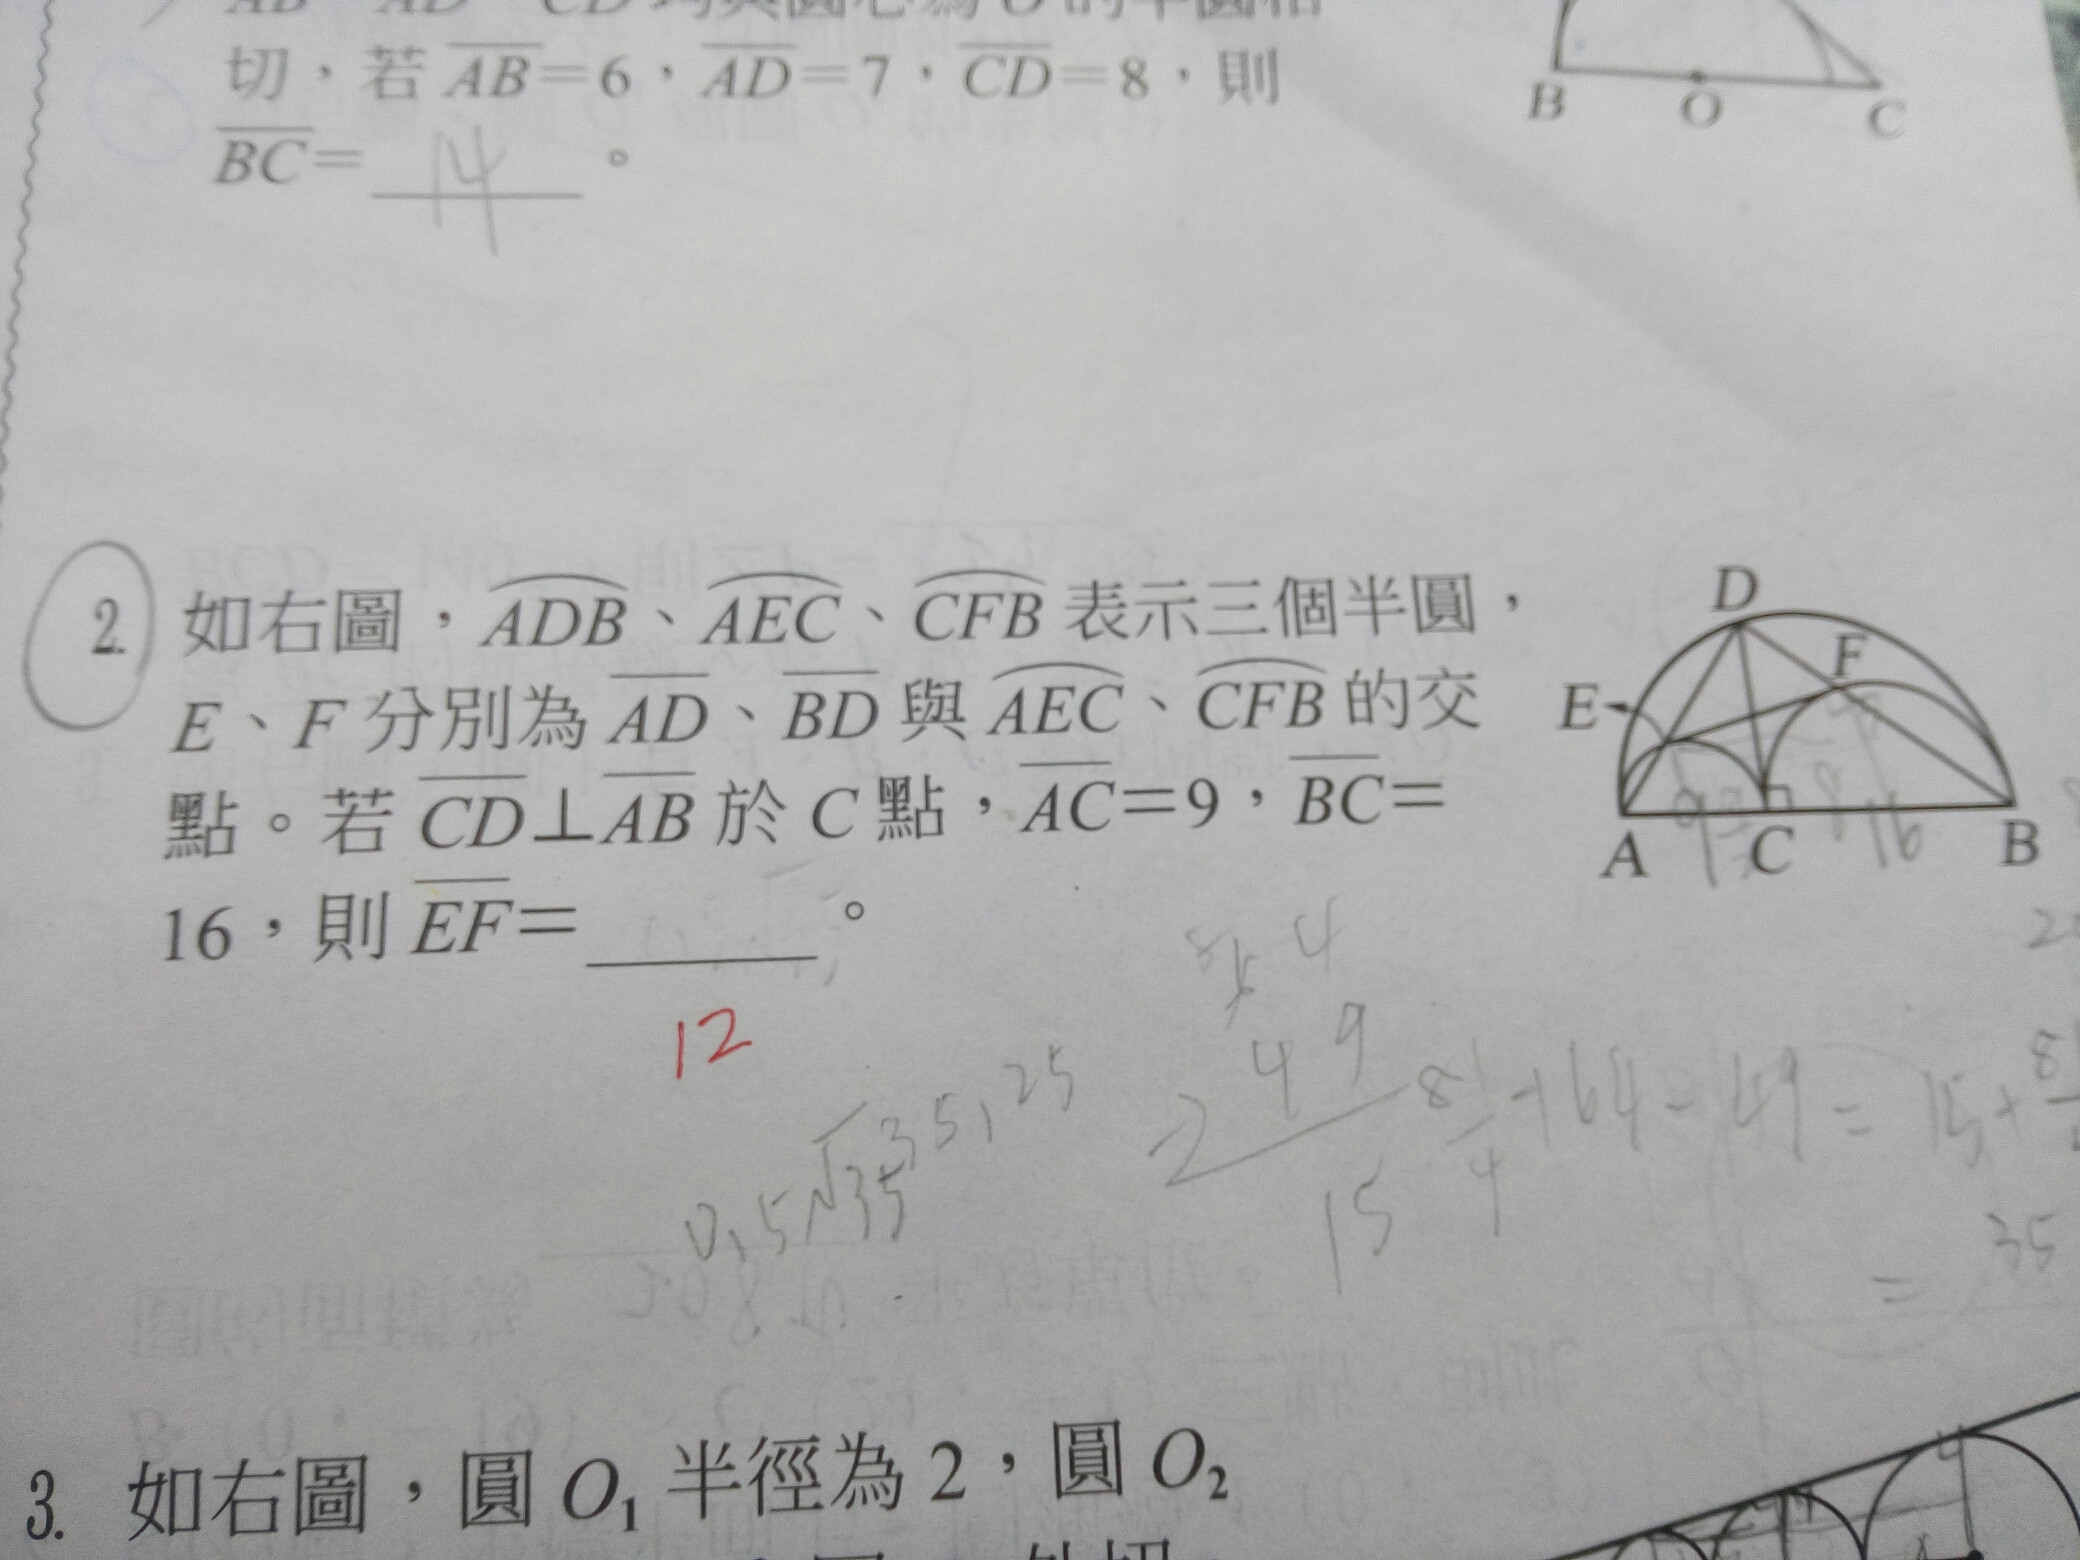 切，若 AB=6，AD=7，CD=8，則
BC= 14 。
B O C
2. 如右圖，ADB、AEC、CFB 表示三個半圓，
E、F 分別為 AD、BD 與 AEC、CFB 的交
點。若 CD⊥AB 於 C 點，AC=9，BC=
16，則 EF= 。
12
D
F
E
A C B
16
4
4 9
2
15
81/4+64-49=15+
=
35
0.5√35
35,25
3. 如右圖，圓 O₁ 半徑為 2，圓 O₂